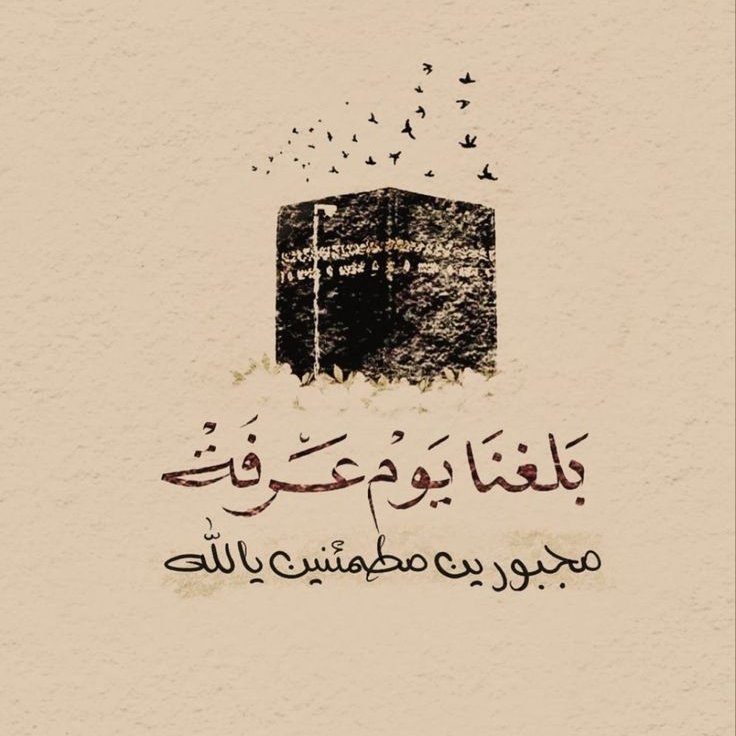 بَلغنَا يَوْم عَرَفَتْ
مجبورين مطمئنين يالله